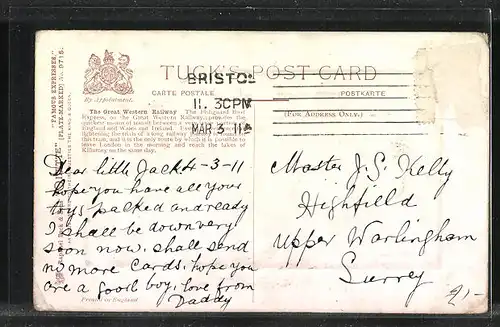 "FAMOUS EXPRESSES."
(PLATE-MARKED) No. 9715.
By Appointment.
TUCK'S POST CARD
CARTE POSTALE
POSTKARTE
(FOR ADDRESS ONLY.)
BRISTOL
11.3CPM
MAR 3 11
The Great Western Railway
Express, or the Great Western Railway, provides the
England and Wales and Ireland.
this train, and it is the only route by which it is possible to
leave London in the morning and reach the lakes of
Killarney on the same day.
Dear little Jack 4-3-11
hope you have all your
toys packed and ready
I shall be down very
soon now. shall send
no more cards. hope you
are a good boy, love from
Daddy
Printed in England
Master J. S. Kelly
Highfield
Upper Warlingham
Surrey
2/-